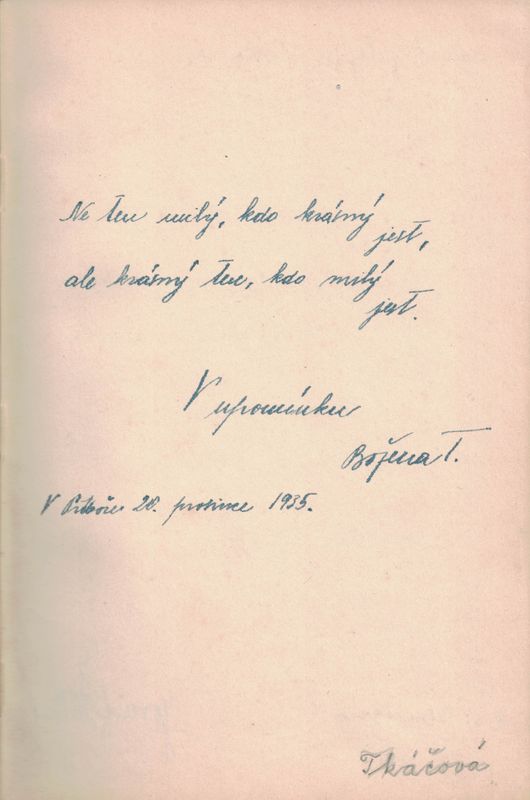 Ne ten milý, kdo krásný
jest,
ale krásný ten, kdo milý
jest.
V upomínku
Božena T.
V Příboře 20. prosince 1935.
Tkáčová